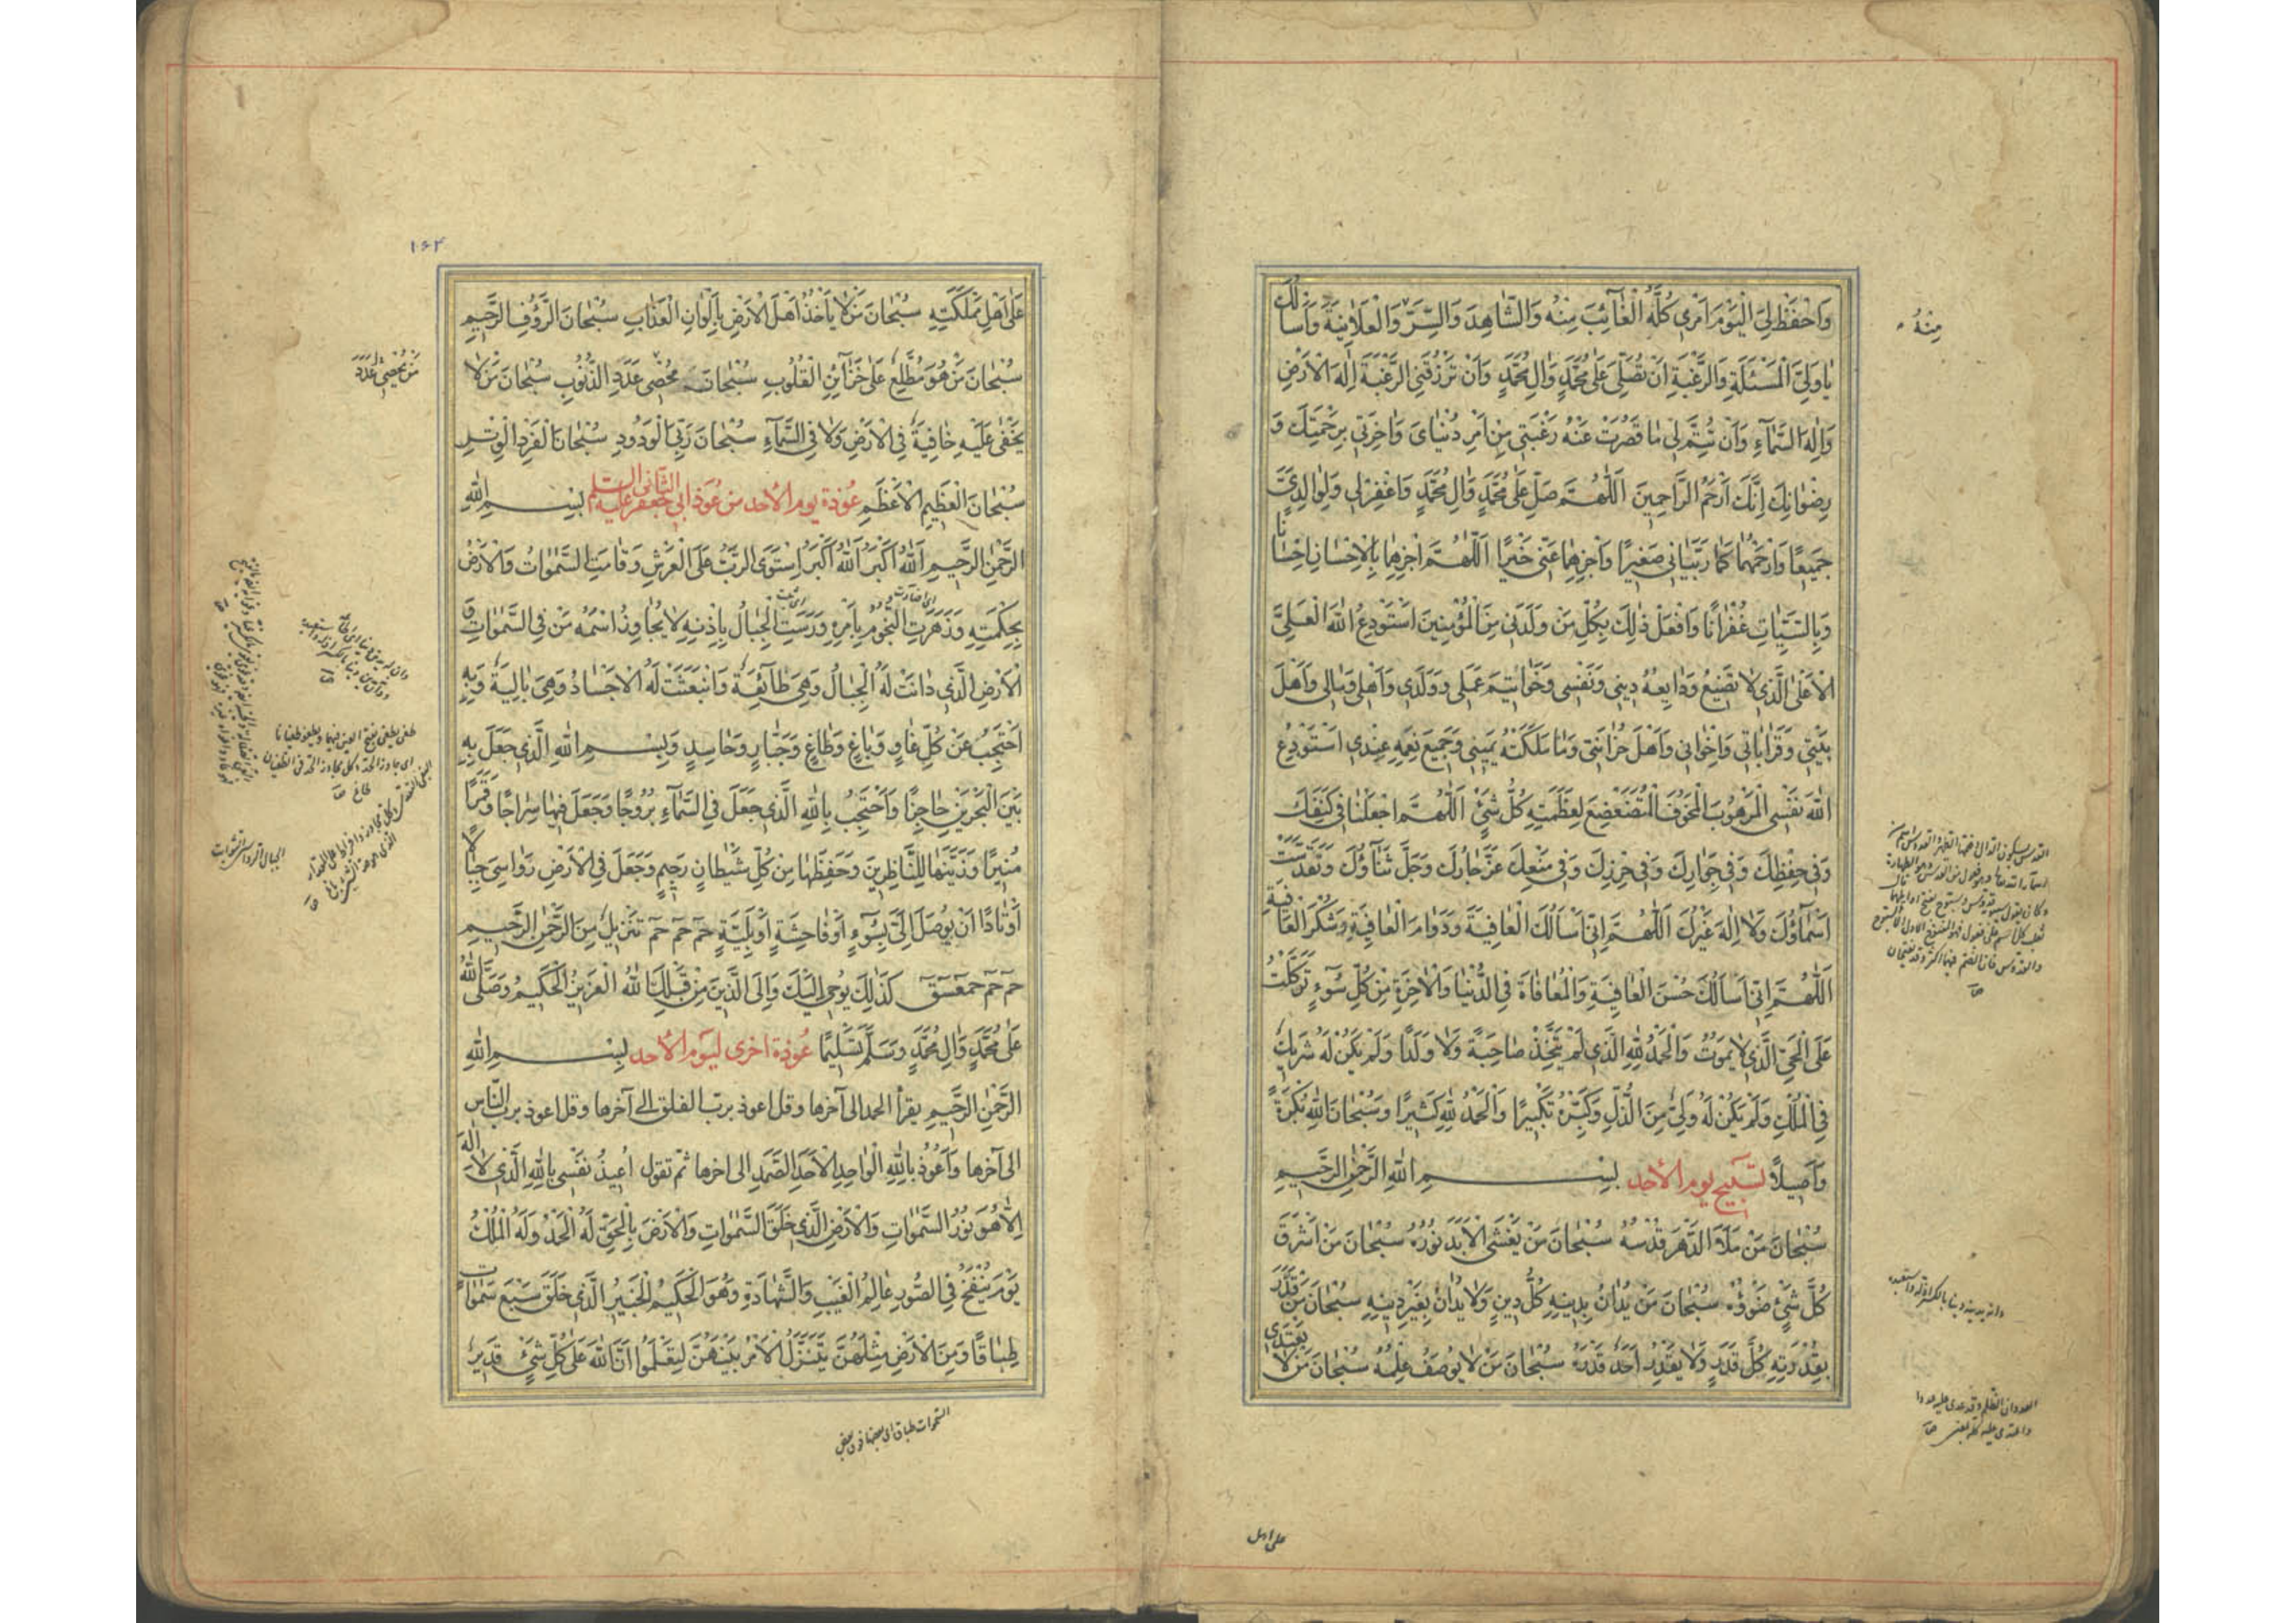 وَاحْفَظْ لِيَ الْيَوْمَ اَمْرى كُلَّهُ الْغآئِبَ مِنْهُ وَالشّاهِدَ وَالسِّرَّ وَالْعَلانِيَةَ وَاَسْاَلُكَ
مِنْهُ
يا وَلِىَّ الْمَسْئَلَةِ وَالرَّغْبَةِ اَنْ تُصَلِّىَ عَلى مُحَمَّدٍ وَالِ مُحَمَّدٍ وَاَنْ تَرْزُقَنِى الرَّغْبَةَ اِلهَ الْاَرْضِ
وَاِلهَ السَّمآءِ وَاَنْ تُتِمَّ لى ما قَصُرَتْ عَنْهُ رَغْبَتى مِنْ اَمْرِ دُنْياىَ وَاخِرَتى بِرَحْمَتِكَ وَ
رِضْوانِكَ اِنَّكَ اَرْحَمُ الرّاحِمينَ اَللّهُمَّ صَلِّ عَلى مُحَمَّدٍ وَالِ مُحَمَّدٍ وَاغْفِرْ لى وَلِوالِدَىَّ
جَميعًا وَارْحَمْهُما كَما رَبَّيانى صَغيرًا وَاجْزِهِما عَنّى خَيْرًا اَللّهُمَّ اجْزِهِما بِالْاِحْسانِ اِحْسانًا
وَبِالسَّيِّئاتِ غُفْرانًا وَافْعَلْ ذلِكَ بِكُلِّ مَنْ وَلَدَنى مِنَ الْمُؤْمِنينَ اَسْتَوْدِعُ اللهَ الْعَلِىَّ
الْاَعْلَى الَّذى لا تَضيعُ وَدايِعُهُ دينى وَنَفْسى وَخَواتيمَ عَمَلى وَوَلَدى وَاَهْلى وَمالى وَاَهْلَ
بَيْتى وَقَراباتى وَاِخْوانى وَاَهْلَ حُزانَتى وَما مَلَكَتْهُ يَمينى وَجَميعَ نِعَمِهِ عِنْدى اَسْتَوْدِعُ
اللهَ نَفْسِى الْمَرْهُوبَ الْمَخُوفَ الْمُتَضَعْضِعَ لِعَظَمَتِهِ كُلُّ شَىْءٍ اَللّهُمَّ اجْعَلْنا فى كَنَفِكَ
وَفى حِفْظِكَ وَفى جِوارِكَ وَفى حِرْزِكَ وَفى مَنْعِكَ عَزَّ جارُكَ وَجَلَّ ثَنآؤُكَ وَتَقَدَّسَتْ
اَسْمآؤُكَ وَلا اِلهَ غَيْرُكَ اَللّهُمَّ اِنّى اَسْاَلُكَ الْعافِيَةَ وَدَوامَ الْعافِيَةِ وَشُكْرَ الْعافِيَةِ
اَللّهُمَّ اِنّى اَسْاَلُكَ حُسْنَ الْعافِيَةِ وَالْمُعافاةَ فِى الدُّنْيا وَالْاخِرَةِ مِنْ كُلِّ سُوءٍ تَوَكَّلْتُ
عَلَى الْحَىِّ الَّذى لا يَمُوتُ وَالْحَمْدُ لِلّهِ الَّذى لَمْ يَتَّخِذْ صاحِبَةً وَلا وَلَدًا وَلَمْ يَكُنْ لَهُ شَريكٌ
فِى الْمُلْكِ وَلَمْ يَكُنْ لَهُ وَلِىٌّ مِنَ الذُّلِّ وَكَبِّرْهُ تَكْبيرًا وَالْحَمْدُ لِلّهِ كَثيرًا وَسُبْحانَ اللهِ بُكْرَةً
وَاَصيلاً تسبيح يوم الأحد بِسْمِ اللهِ الرَّحْمنِ الرَّحيمِ
سُبْحانَ مَنْ مَلَاَ الدَّهْرَ قُدْسُهُ سُبْحانَ مَنْ يَغْشَى الْاَبَدَ نُورُهُ سُبْحانَ مَنْ اَشْرَقَ
كُلَّ شَىْءٍ ضَوْؤُهُ سُبْحانَ مَنْ يُدانُ بِدينِهِ كُلُّ دينٍ وَلا يُدانُ بِغَيْرِ دينِهِ سُبْحانَ مَنْ قَدَّرَ
بِقُدْرَتِهِ كُلَّ قَدَرٍ وَلا يَقْدِرُ اَحَدٌ قَدْرَهُ سُبْحانَ مَنْ لا يُوصَفُ عِلْمُهُ سُبْحانَ مَنْ لا يَعْتَدى
على اهل
۱۶۴
عَلى اَهْلِ مَمْلَكَتِهِ سُبْحانَ مَنْ لا يَاْخُذُ اَهْلَ الْاَرْضِ بِاَلْوانِ الْعَذابِ سُبْحانَ الرَّؤُفِ الرَّحيمِ
سُبْحانَ مَنْ هُوَ مُطَّلِعٌ عَلى خَزآئِنِ الْقُلُوبِ سُبْحانَ مُحْصى عَدَدِ الذُّنُوبِ سُبْحانَ مَنْ لا
مَنْ يُحْصى عَدَدَ
يَخْفى عَلَيْهِ خافِيَةٌ فِى الْاَرْضِ وَلا فِى السَّمآءِ سُبْحانَ رَبِّىَ الْوَدُودِ سُبْحانَ الْفَرْدِ الْوِتْرِ
سُبْحانَ الْعَظيمِ الْاَعْظَمِ عُوذة يوم الأحد من عُوَذ ابى جعفر الثّانى عليه السلم بِسْمِ اللهِ
الرَّحْمنِ الرَّحيمِ اَللهُ اَكْبَرُ اَللهُ اَكْبَرُ اِسْتَوَى الرَّبُّ عَلَى الْعَرْشِ وَقامَتِ السَّمواتُ وَالْاَرْضُ
بِحِكْمَتِهِ وَزَهَرَتِ النُّجُومُ بِاَمْرِهِ وَرَسَتِ الْجِبالُ بِاِذْنِهِ لا يُجاوِزُ اسْمَهُ مَنْ فِى السَّمواتِ وَ
الْاَرْضِ الَّذى دانَتْ لَهُ الْجِبالُ وَهِىَ طآئِعَةٌ وَانْبَعَثَتْ لَهُ الْاَجْسادُ وَهِىَ بالِيَةٌ وَبِهِ
اَحْتَجِبُ عَنْ كُلِّ غاوٍ وَباغٍ وَطاغٍ وَجَبّارٍ وَحاسِدٍ وَبِسْمِ اللهِ الَّذى جَعَلَ بِهِ
بَيْنَ الْبَحْرَيْنِ حاجِزًا وَاَحْتَجِبُ بِاللهِ الَّذى جَعَلَ فِى السَّمآءِ بُرُوجًا وَجَعَلَ فيها سِراجًا وَقَمَرًا
مُنيرًا وَزَيَّنَها لِلنّاظِرينَ وَحَفِظَها مِنْ كُلِّ شَيْطانٍ رَجيمٍ وَجَعَلَ فِى الْاَرْضِ رَواسِىَ جِبالًا
اَوْتادًا اَنْ يُوصَلَ اِلَىَّ بِسُوءٍ اَوْ فاحِشَةٍ اَوْ بَلِيَّةٍ حم حم حم تَنْزيلٌ مِنَ الرَّحْمنِ الرَّحيمِ
حم حم حمعسق كَذلِكَ يُوحى اِلَيْكَ وَاِلَى الَّذينَ مِنْ قَبْلِكَ اللهُ الْعَزيزُ الْحَكيمُ وَصَلَّى اللهُ
عَلى مُحَمَّدٍ وَالِ مُحَمَّدٍ وَسَلَّمَ تَسْليمًا عُوذة اخرى ليوم الأحد بِسْمِ اللهِ
الرَّحْمنِ الرَّحيمِ يقرأ الحمد الى آخرها وقل اعوذ بربّ الفلق الى آخرها وقل اعوذ بربّ النّاس
الى آخرها وَاَعُوذُ بِاللهِ الْواحِدِ الْاَحَدِ الصَّمَدِ الى اخرها ثمّ تقول اُعيذُ نَفْسى بِاللهِ الَّذى لا اِلهَ
اِلّا هُوَ نُورُ السَّمواتِ وَالْاَرْضِ الَّذى خَلَقَ السَّمواتِ وَالْاَرْضَ بِالْحَقِّ لَهُ الْحَمْدُ وَلَهُ الْمُلْكُ
يَوْمَ يُنْفَخُ فِى الصُّورِ عالِمُ الْغَيْبِ وَالشَّهادَةِ وَهُوَ الْحَكيمُ الْخَبيرُ الَّذى خَلَقَ سَبْعَ سَمواتٍ
طِباقًا وَمِنَ الْاَرْضِ مِثْلَهُنَّ يَتَنَزَّلُ الْاَمْرُ بَيْنَهُنَّ لِيَعْلَمُوا اَنَّ اللهَ عَلى كُلِّ شَىْءٍ قَديرٌ
السّموات طباق اى بعضها فوق بعض